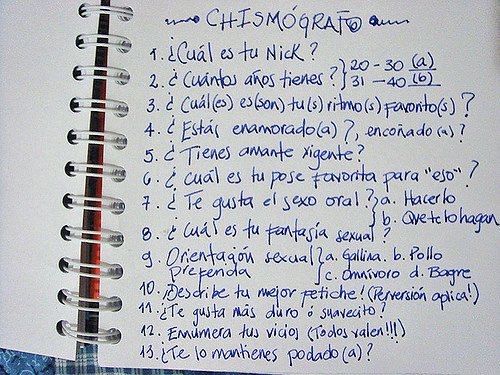 CHISMÓGRAFO
1. ¿Cuál es tu Nick?
2. ¿Cuántos años tienes? } 20-30 (a) 31-40 (b)
3. ¿Cuál(es) es(son) tu(s) ritmo(s) favorito(s)?
4. ¿Estás enamorado(a)?, encoñado(a)?
5. ¿Tienes amante vigente?
6. ¿Cuál es tu pose favorita para "eso"?
7. ¿Te gusta el sexo oral? } a. Hacerlo
b. Que te lo hagan
8. ¿Cuál es tu fantasía sexual?
9. Orientación sexual } a. Gallina. b. Pollo
preferida c. Omnívoro d. Bagre
10. ¡Describe tu mejor fetiche! (Perversión aplica!)
11. ¿Te gusta más duro ó suavecito?
12. Ennumera tus vicios (Todos valen!!!)
13. ¿Te lo mantienes podado(a)?